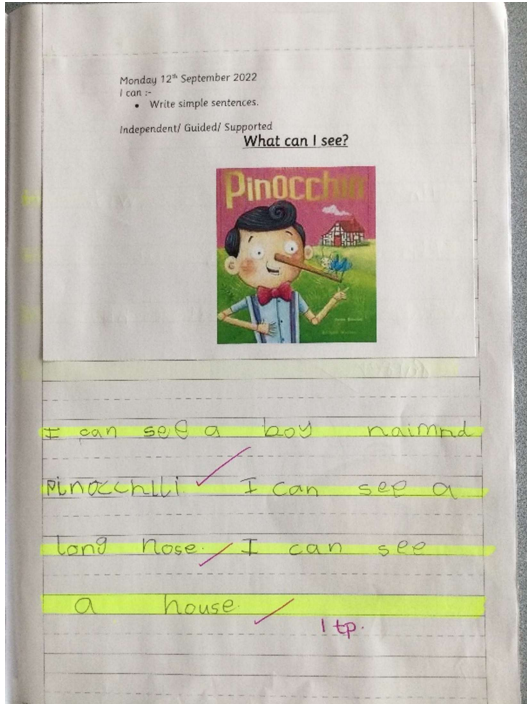 Monday 12th September 2022
I can :-
• Write simple sentences.
Independent/ Guided/ Supported
What can I see?
Pinocchio
I can see a boy naimnd
pinocchili I can see a
long nose. I can see
a house.
1 tp.